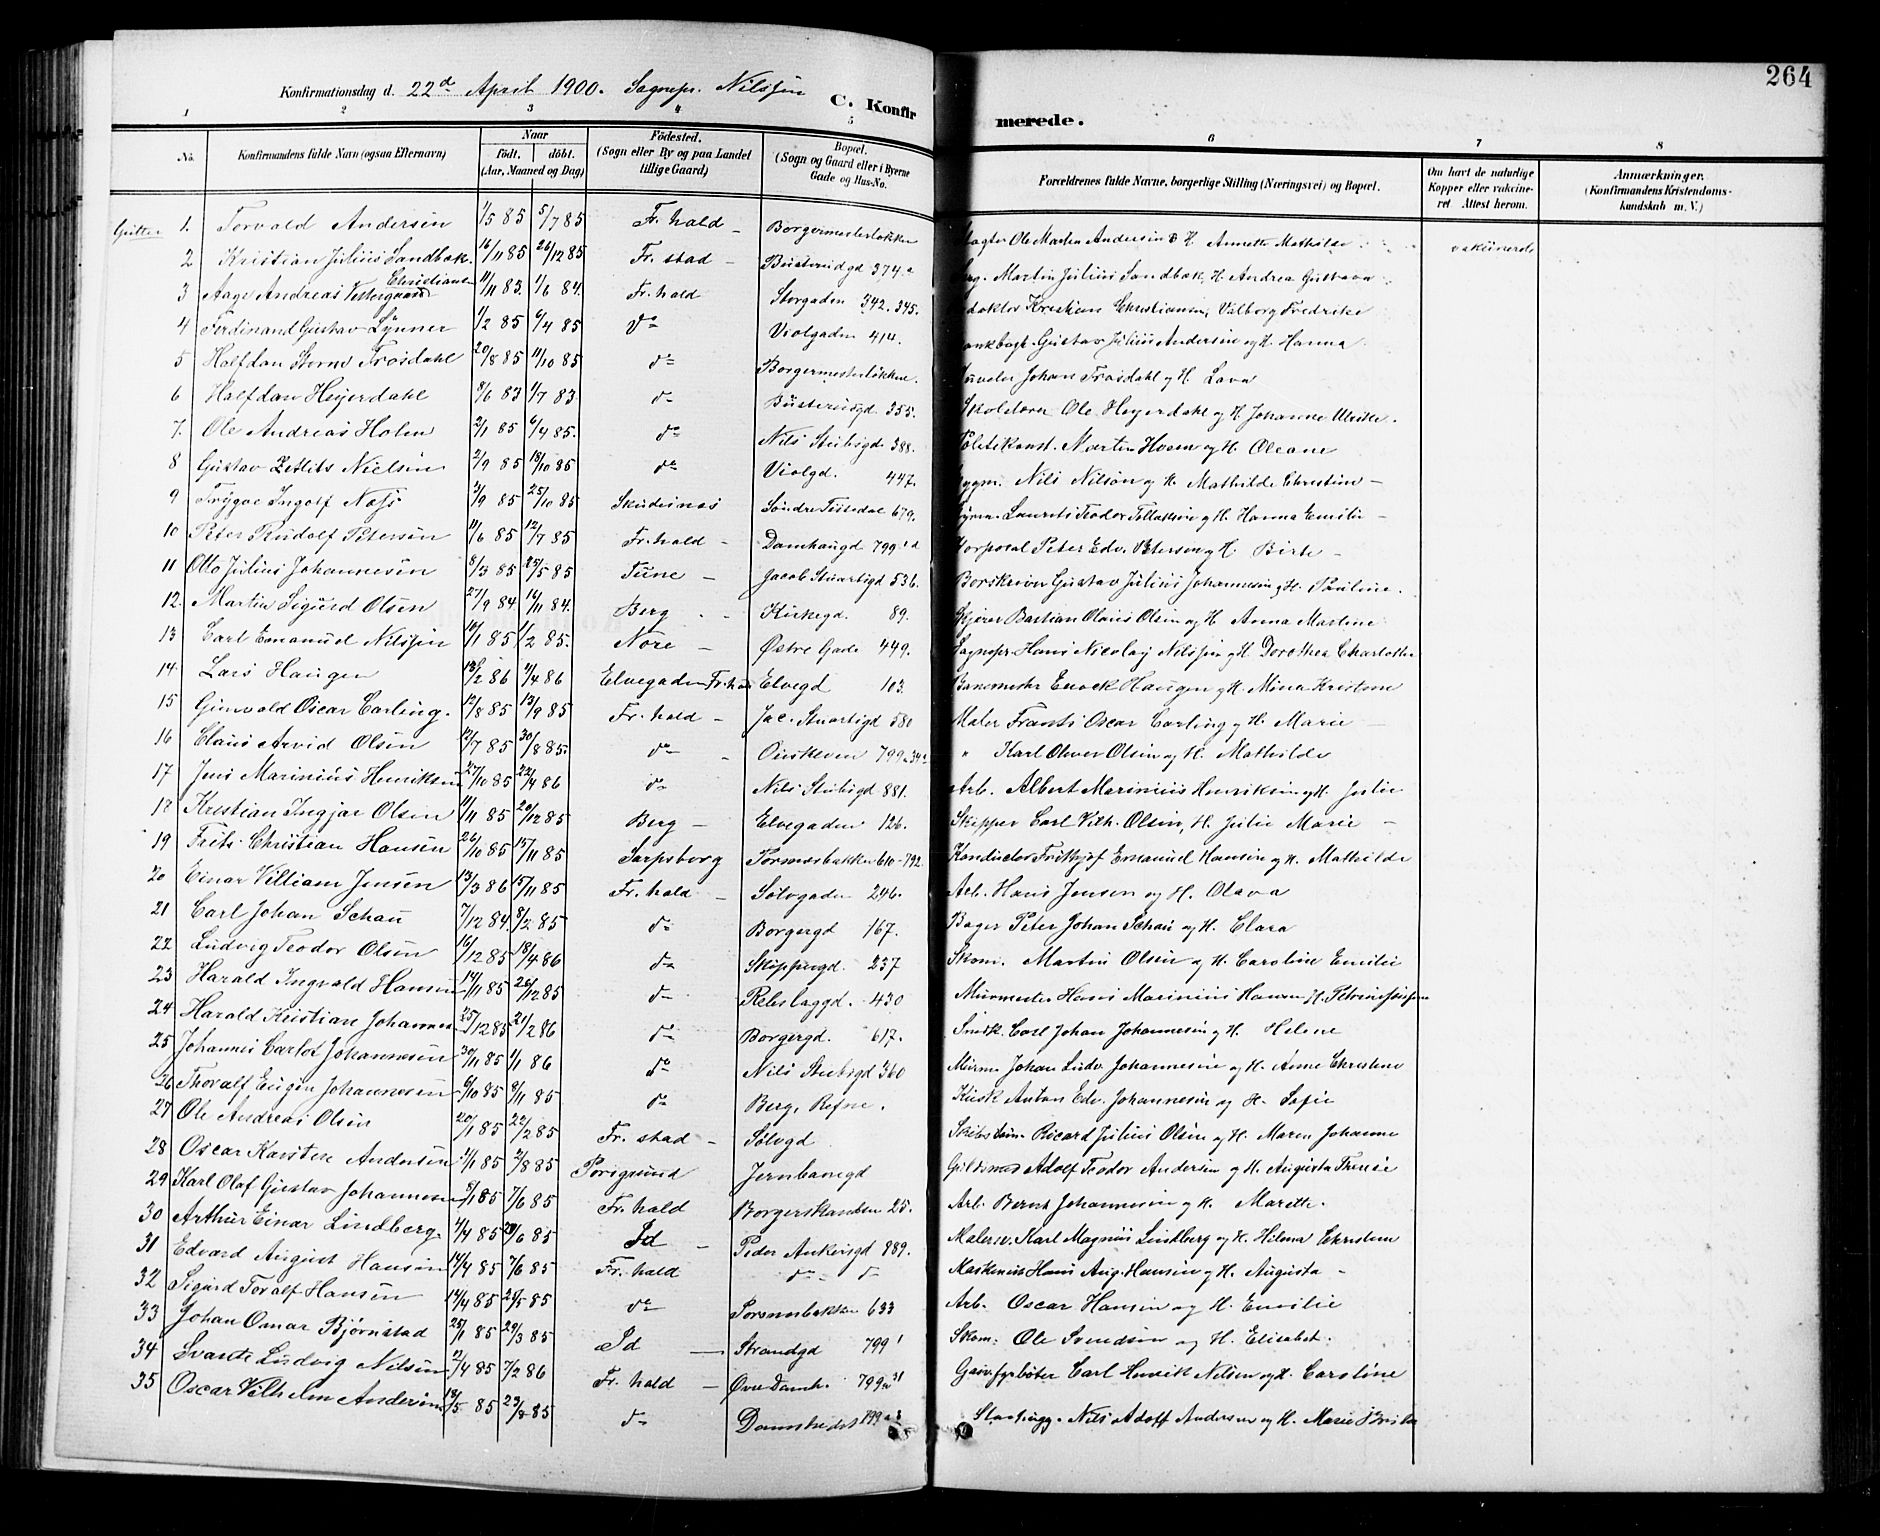 264
Konfirmationsdag d. 22d April 1900. Sognepr. Nilssen
C. Konfirmerede.
1 2 3 4 5 6 7 8
No. Konfirmandens fulde Navn (ogsaa Efternavn) Naar födt. döbt. (Aar, Maaned og Dag) Födested. (Sogn eller By og paa Landet tillige Gaard) Bopæl. (Sogn og Gaard eller i Byerne Gade og Hus-No. Forældrenes fulde Navne, borgerlige Stilling (Næringsvei) og Bopæl. Om havt de naturlige Kopper eller vaccineret Attest herom. Anmærkninger. (Konfirmandens Kristendomskundskab m. V.)
Gutter 1. Torvald Andersen 1/5 85 5/7 85 Fr. hald Borgermesterløkken Ole Martin Andersen & H. Annette Mathilde vakcinerede
2 Kristian Julius Sandbæk 16/11 85 26/12 85 Fr. stad Busterudgd 374 a Martin Julius Sandbæk, H. Andrea Gustava
3 Aage Andreas Vestergaard Christiansen 11/11 83. 1/6 84. Fr. hald Storgaden 342. 345. Kristian Christiansen, Valborg Fredrike
4 Ferdinand Gustav Lynner 1/2 85 6/4 85 do Violgaden 414. Gustav Julius Andersen og H. Hanna
5 Halfdan Storm Frosdahl 20/8 85 11/10 85 do Borgermesterløkken Johan Frosdahl og H. Lava
6 Halfdan Heyerdahl 8/6 83 1/7 83 do Busterudgd. 355. Ole Heyerdahl og H. Johanne Ulrikke.
7. Ole Andreas Holen 2/1 85 6/4 85. do Nils Stubsgd 388. Politikonst. Martin Hoen og H. Oleane
8 Gustav Zetlits Nielsen 2/9 85 18/10 85 do Violgd. 447. Nils Nilson og H. Mathilde Christine
9 Trygve Ingolf Næss 3/9 85 25/10 85 Skudesnes Søndre Tistedal 679. Laurits Teodor Tollaksen og H. Hanna Emilie
10 Peter Rudolf Petersen 11/6 85 12/7 85 Fr. hald Damhaugd 799 1 a Korporal Peter Edv. Petersen og H. Birte
11 Otto Julius Johannesen 8/3 85 25/5 85 Tune Jacob Stuartsgd 536. Borskriver Gustav Julius Johannesen & H. Pauline.
12. Martin Sigurd Olsen 27/9 84. 16/11 84. Berg Kirkegd. 89. Kjører Bastian Olaus Olsen og H. Anna Martine
13 Carl Emanuel Nilssen 10/1 85 1/2 85. Nore Østre Gade 449. Sognepr. Hans Nicolaj Nilssen og H. Dorothea Charlotte
14 Lars Haugen 13/2 86 4/4 86 Elvegaden Fr. hald Elvegd 103. Banemester Enock Haugen og H. Mina Kristine
15 Gunvald Oscar Carling. 12/8 85 13/9 85 Fr. hald Jac. Stuartsgd 580 Maler Frants Oscar Carling og H. Marie
16 Claus Arvid Olsen 12/7 85 30/8 85. do 799. 34 a " Karl Oliver Olsen og H. Mathilde
17 Jens Marinius Henriksen 27/10 85 22/4 86 do Nils Stubsgd 881. Arb. Albert Marinius Henriksen og H. Julie
18 Kristian Ingjar Olsen 11/11 85 20/12 85 Berg Elvegaden 126. Skipper Carl Vilh. Olsen, H. Julie Marie
19 Frits Christian Hansen 26/10 85 15/11 85 Sarpsborg Torsnesbakken 610-792. Konductør Frithjof Emanuel Hansen og H. Mathilde
20 Einar Villiam Jensen 13/3 86 15/11 85 Fr. hald Sølvgaden 246. Arb. Hans Jensen og H. Olava
21 Carl Johan Schau 7/12 84. 8/2 85 do Borgergd 167. Bager Peter Johan Schau og H. Clara
22 Ludvig Teodor Olsen 16/12 85 18/4 86 do Skippergd. 237 Skom. Martin Olsen og H. Caroline Emilie
23 Harald Ingvald Hansen 14/11 85 26/12 85 do Rebslaggd. 430 Murmester Hans Marinius Hansen, H. Petrine Josefine
24 Harald Kristian Johannes 25/12 85 21/2 86 do Borgergd. 617. Snedk. Carl Johan Johannesen og H. Helene
25 Johannes Carlot Johannesen 30/11 85 1/1 86 do Nils Stubsgd 360 Murm. Johan Ludv. Johannesen og H. Anne Christine
26 Thoralf Eugen Johannesen 6/10 85 8/11 85 do Berg, Refne. Kusk Anton Edv. Johannesen og H. Sofie
27 Ole Andreas Olsen 20/1 85 22/2 85 Fr. stad Sølvgd Skibstøm. Ricard Julius Olsen og H. Maren Johanne
28 Oscar Karsten Andersen 3/1 85 2/8 85 Porsgrund Jernbanegd Guldsmed Adolf Teodor Andersen og H. Augusta Therese
29 Karl Olaf Gustav Johannesen 8/1 85 7/6 85 Fr. hald Borgerskandsen 25. Arb. Bernt Johannesen og H. Marette.
30 Arthur Einar Lindberg 4/4 85 29/6 85 Id Peder Ankersgd 889. Malersv. Karl Magnus Lindberg og H. Hilma Christine
31 Edvard August Hansen 14/4 85 7/6 85 Fr. hald do do Maskinist Hans Aug. Hansen og H. Augusta
32 Sigurd Toralf Hansen 14/4 85 25/5 85 do Torsnesbakken 633 Arb. Oscar Hansen og H. Emilie
33 Johan Omar Bjørnstad 25/1 85 29/3 85 Id Strandgd 799 1 Skom. Ole Svendsen og H. Elisabet.
34 Svante Ludvig Nilsen 2/4 85 7/2 86 Fr. hald Øvre Damh. 799 a 31 Gasv. fyrbøter Carl Henrik Nilsen og H. Caroline
35 Oscar Vilhelm Andersen 13/5 85 23/8 85 do 799 a Nils Adolf Andersen og H. Marie